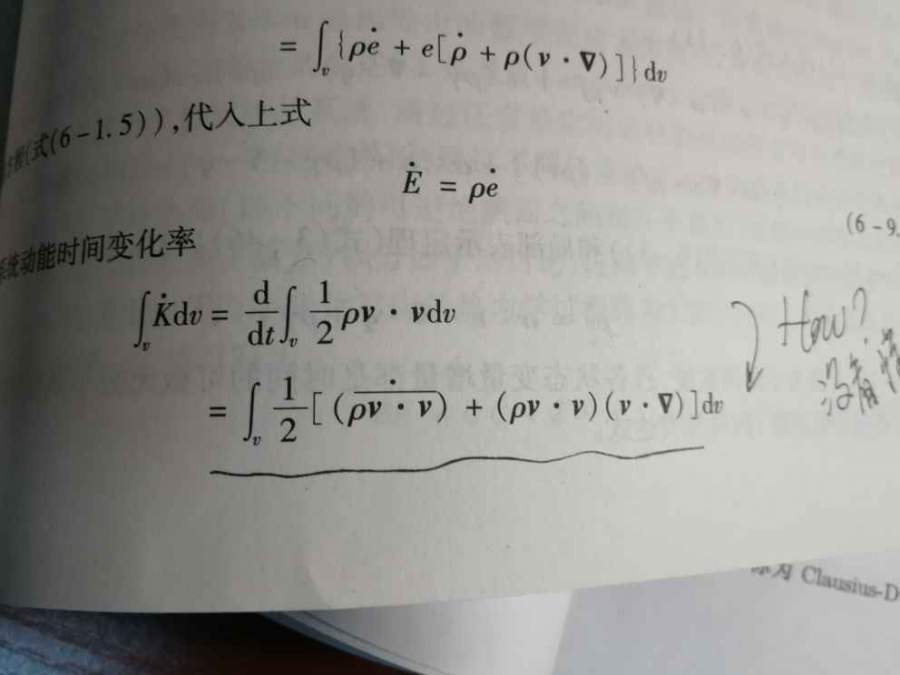 = ∫_v {ρė + e[ρ̇ + ρ(v · ∇)]}dv
(式(6-1.5)),代入上式
Ė = ρė
(6-9.
系统动能时间变化率
∫_v K̇dv = d/dt ∫_v 1/2 ρv · vdv
How?
= ∫_v 1/2 [(ρv · v)̇ + (ρv · v)(v · ∇)]dv
没看
Clausius-D